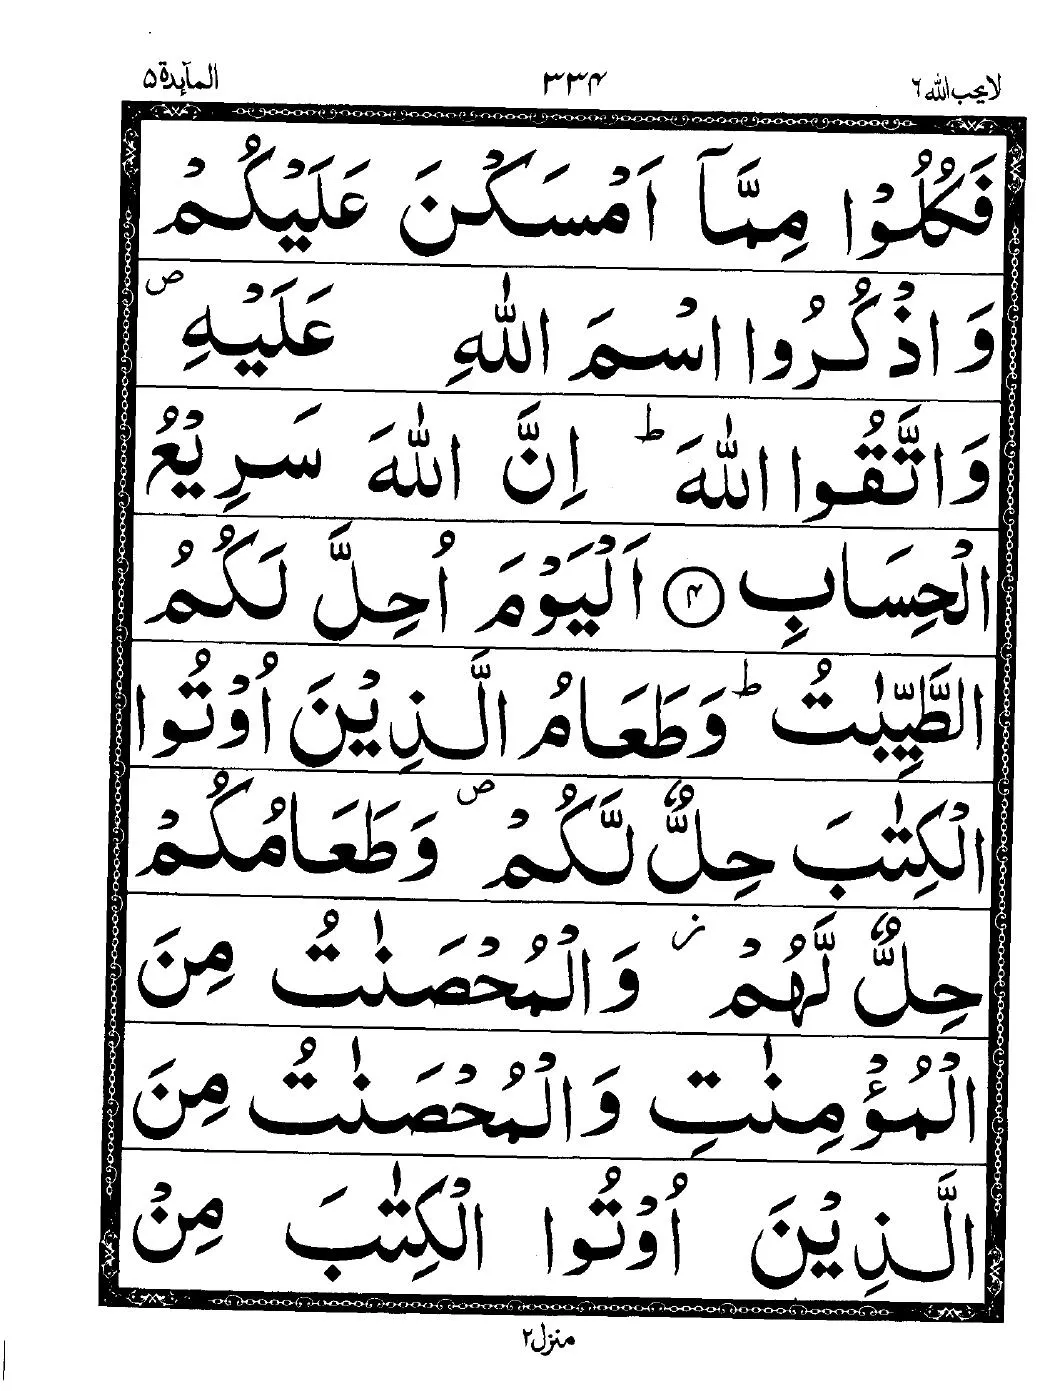 لا يحب الله ٦ ٣٣۴ المآىِٕدة ۵
فَكُلُوْا مِمَّاۤ اَمْسَكْنَ عَلَيْكُمْ
وَ اذْكُرُوا اسْمَ اللّٰهِ عَلَيْهِ ۪
وَ اتَّقُوا اللّٰهَ ؕ اِنَّ اللّٰهَ سَرِيْعُ
الْحِسَابِ ۴ اَلْيَوْمَ اُحِلَّ لَكُمُ
الطَّيِّبٰتُ ؕ وَ طَعَامُ الَّذِيْنَ اُوْتُوا
الْكِتٰبَ حِلٌّ لَّكُمْ ۪ وَ طَعَامُكُمْ
حِلٌّ لَّهُمْ ؗ وَ الْمُحْصَنٰتُ مِنَ
الْمُؤْمِنٰتِ وَ الْمُحْصَنٰتُ مِنَ
الَّذِيْنَ اُوْتُوا الْكِتٰبَ مِنْ
منزل ٢